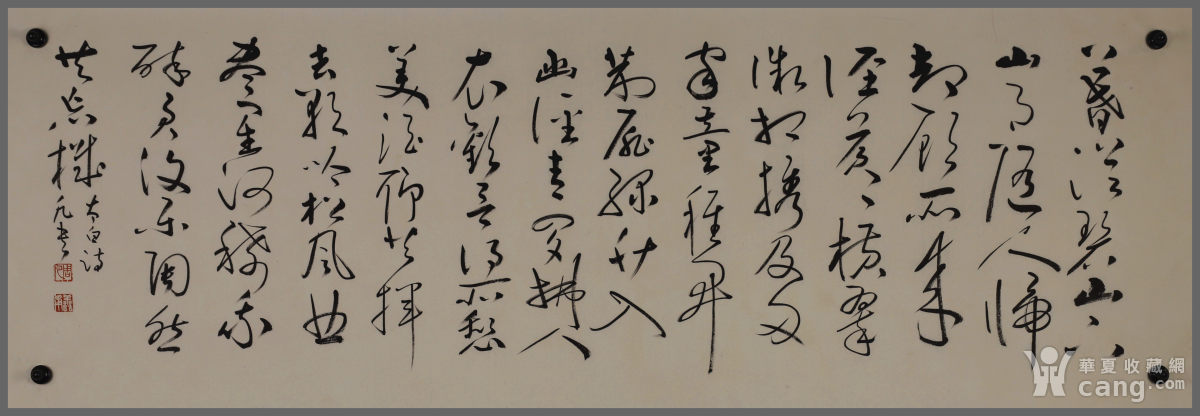 暮從碧山下
山月隨人歸
却顧所來
徑蒼蒼橫翠
微相攜及田
家童稚開
荊扉綠竹入
幽徑青蘿拂行
衣歡言得所憩
美酒聊共揮
長歌吟松風曲
盡星河稀我
醉君復樂陶然
共忘機
太白詩
凡書
華夏收藏網
cang.com